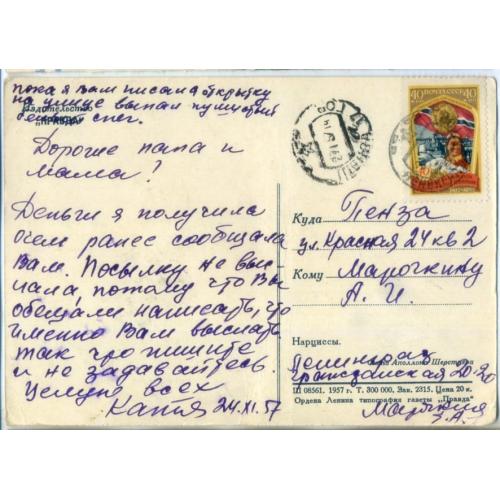 Пока я Вам писала открытку
на улице выпал пушистый
белый снег.
Издательство
"ПРАВДА"
Дорогие папа и
мама!
Деньги я получила
о чем ранее сообщала
Вам. Посылку не выс-
лала, потому что Вы
обещали написать, что
именно Вам выслать
так что пишите
и не задавайтесь.
Целую всех
Катя 24.XI.57
40 ПОЧТА СССР 40
ПЕНЗА
Куда Пенза
ул. Красная 24 кв 2
Кому Марочкину
А. И.
Нарциссы.
Аполлона Шерстова
Ленинград
Гражданская 20-20
Ш 08561. 1957 г. Т. 300 000. Зак. 2315. Цена 20 к.
Ордена Ленина типография газеты "Правда"
З.А.